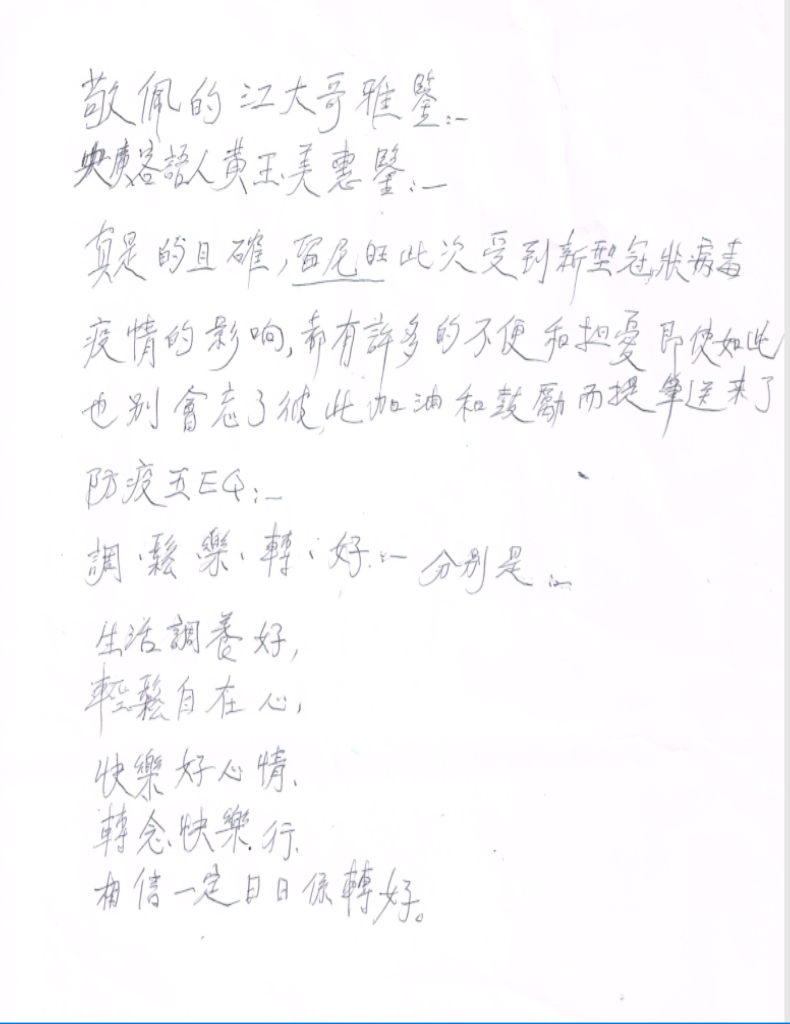 敬佩的江大哥雅鑒:-
央廣客語人黃玉美惠鑒:-
真是的且確,留尼旺此次受到新型冠狀病毒
疫情的影响,都有許多的不便和担憂即使如此
也別會忘了彼此加油和鼓勵而提筆送來了
防疫五EQ:-
調、鬆、樂、轉、好:- 分別是:-
生活調養好,
輕鬆自在心,
快樂好心情、
轉念快樂行、
相信一定日日係轉好。